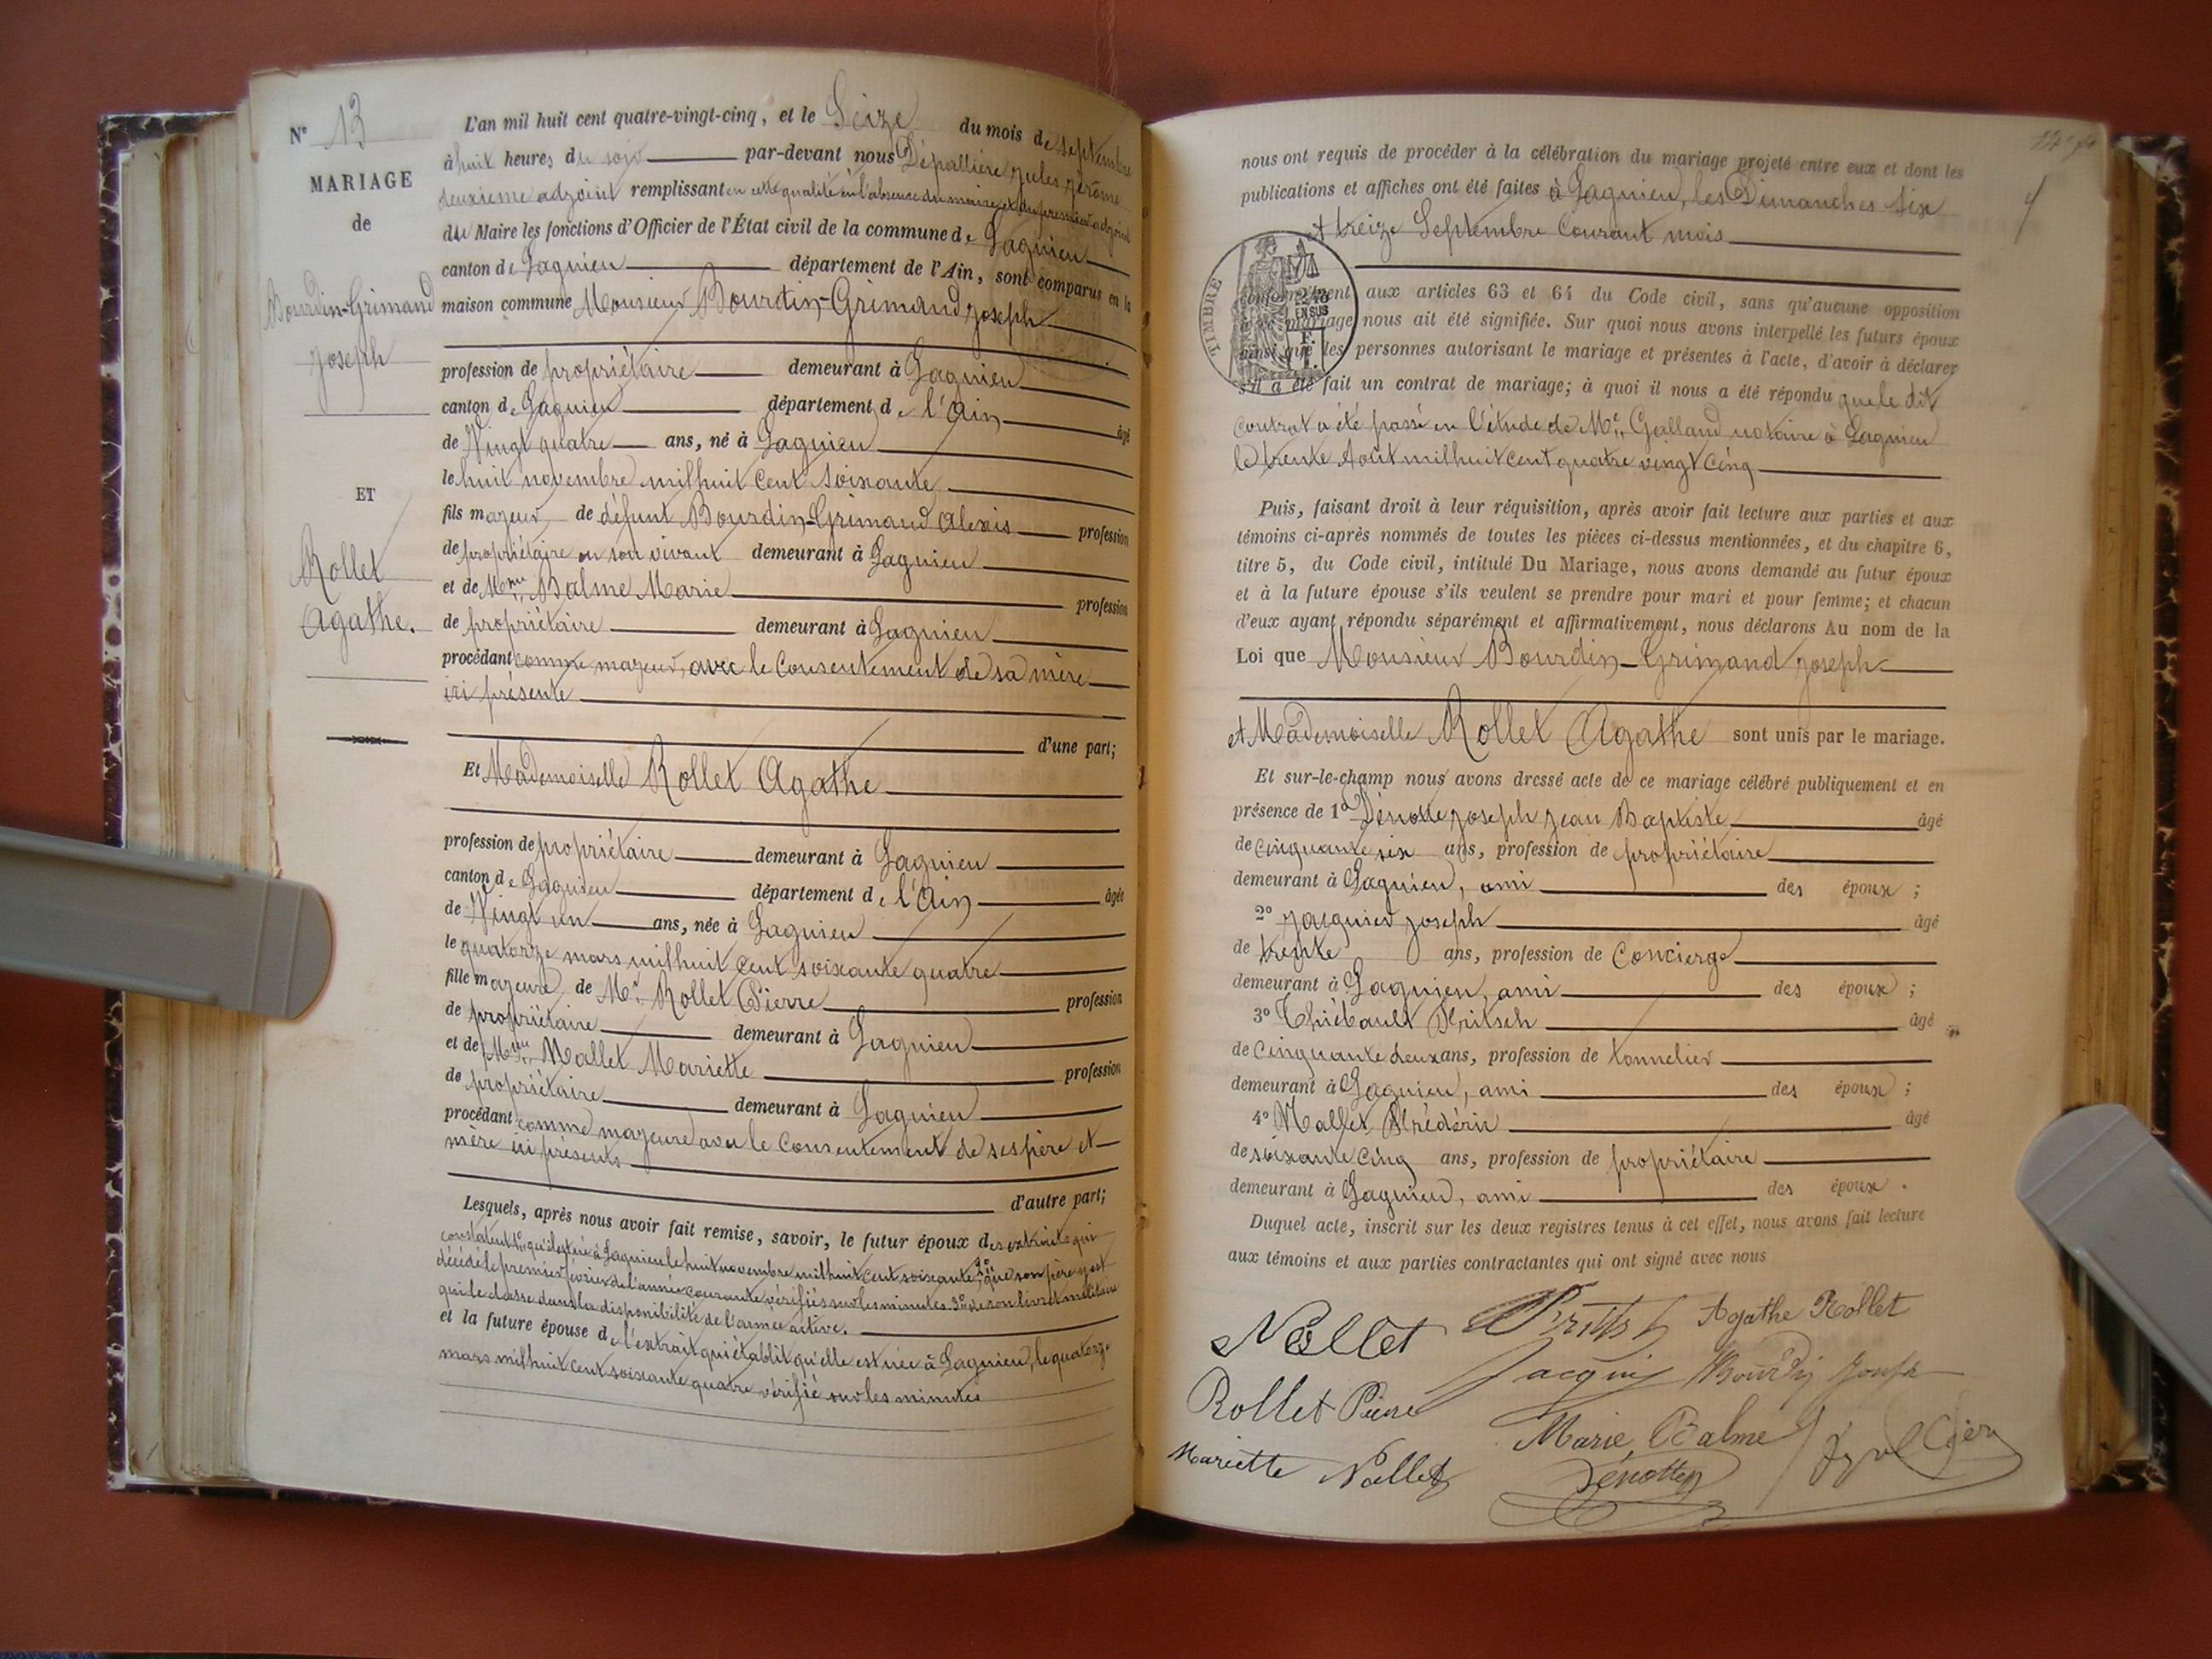 N° 13
MARIAGE
de
Bourdin-Grimaud
Joseph
ET
Rollet
Agathe.
L'an mil huit cent quatre-vingt-cinq, et le Seize du mois de Septembre
à huit heures du soir par-devant nous Dépallière Jules Jérôme
deuxième adjoint remplissant en cette qualité en l'absence du maire et du premier adjoint
du Maire les fonctions d'Officier de l'État civil de la commune de Lagnieu
canton de Lagnieu département de l'Ain, sont comparus en la
maison commune Monsieur Bourdin-Grimaud Joseph
profession de propriétaire demeurant à Lagnieu
canton de Lagnieu département de l'Ain âgé
de Vingt quatre ans, né à Lagnieu
le huit novembre mil huit cent soixante
fils majeur de défunt Bourdin-Grimaud Alexis profession
de propriétaire en son vivant demeurant à Lagnieu
et de Mme Balme Marie profession
de propriétaire demeurant à Lagnieu
procédant comme majeur, avec le consentement de sa mère
ici présente
d'une part;
Et Mademoiselle Rollet Agathe
profession de propriétaire demeurant à Lagnieu
canton de Lagnieu département de l'Ain âgée
de Vingt un ans, née à Lagnieu
le quatorze mars mil huit cent soixante quatre
fille majeure de Mr Rollet Pierre profession
de propriétaire demeurant à Lagnieu
et de Mme Nallet Mariette profession
de propriétaire demeurant à Lagnieu
procédant comme majeure avec le consentement de ses père et
mère ici présents
d'autre part;
Lesquels, après nous avoir fait remise, savoir, le futur époux des extraits qui
constatent 1° qu'il est né à Lagnieu le huit novembre mil huit cent soixante, 2° que son père y est
décédé le premier février de l'année courante vérifiés sur les minutes. 3° de son livret militaire
qui le classe dans la disponibilité de l'armée active.
et la future épouse de l'extrait qui établit qu'elle est née à Lagnieu, le quatorze
mars mil huit cent soixante quatre vérifié sur les minutes
nous ont requis de procéder à la célébration du mariage projeté entre eux et dont les
publications et affiches ont été faites à Lagnieu, les Dimanches six
et treize Septembre Courant mois
TIMBRE
EN SUS
conformément aux articles 63 et 64 du Code civil, sans qu'aucune opposition
à ce mariage nous ait été signifiée. Sur quoi nous avons interpellé les futurs époux
ainsi que les personnes autorisant le mariage et présentes à l'acte, d'avoir à déclarer
s'il a été fait un contrat de mariage; à quoi il nous a été répondu que le dit
contrat a été passé en l'étude de Me Galland notaire à Lagnieu
le trente Août mil huit cent quatre vingt cinq
Puis, faisant droit à leur réquisition, après avoir fait lecture aux parties et aux
témoins ci-après nommés de toutes les pièces ci-dessus mentionnées, et du chapitre 6,
titre 5, du Code civil, intitulé Du Mariage, nous avons demandé au futur époux
et à la future épouse s'ils veulent se prendre pour mari et pour femme; et chacun
d'eux ayant répondu séparément et affirmativement, nous déclarons Au nom de la
Loi que Monsieur Bourdin-Grimaud Joseph
et Mademoiselle Rollet Agathe sont unis par le mariage.
Et sur-le-champ nous avons dressé acte de ce mariage célébré publiquement et en
présence de 1° Joseph Jean Baptiste âgé
de cinquante six ans, profession de propriétaire
demeurant à Lagnieu, ami des époux;
2° Jacquier Joseph âgé
de trente ans, profession de Concierge
demeurant à Lagnieu, ami des époux;
3° Thiébault Fritsch âgé
de cinquante deux ans, profession de tonnelier
demeurant à Lagnieu, ami des époux;
4° Nallet Frédéric âgé
de soixante cinq ans, profession de propriétaire
demeurant à Lagnieu, ami des époux.
Duquel acte, inscrit sur les deux registres tenus à cet effet, nous avons fait lecture
aux témoins et aux parties contractantes qui ont signé avec nous
Nallet Fritsch Agathe Rollet
Rollet Pierre Jacquier
Mariette Nallet Marie Balme